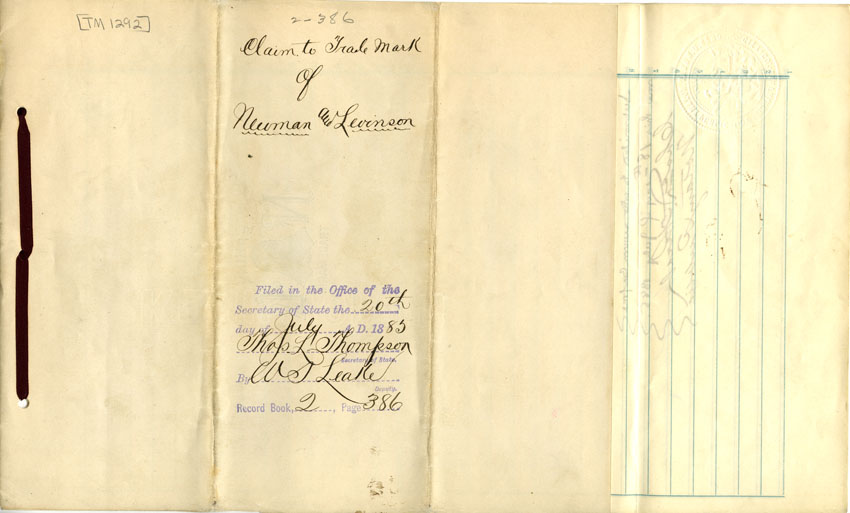 [TM 1292]
2-386
Claim to Trade Mark
Of
Newman and Levinson
Filed in the Office of the
Secretary of State the 20th
day of July A. D. 1885
Thos L. Thompson
Secretary of State.
By W S Leake
Deputy.
Record Book, 2, Page 386